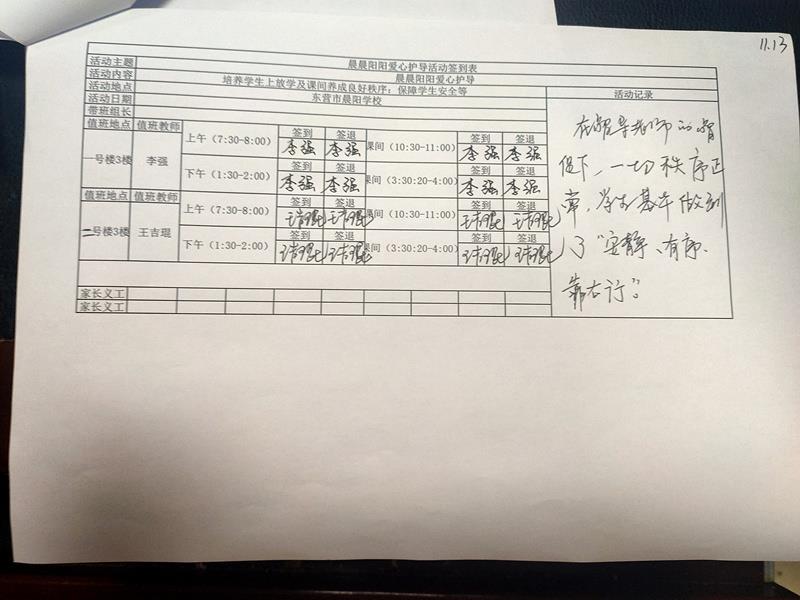 11.13
晨晨阳阳爱心护导活动签到表
活动主题 晨晨阳阳爱心护导
活动内容 培养学生上放学及课间养成良好秩序；保障学生安全等
活动地点 东营市晨阳学校
活动日期
带班组长
活动记录
值班地点 值班教师 上午（7:30-8:00） 签到 签退 课间（10:30-11:00） 签到 签退
李强 李强 李强 李强
一号楼3楼 李强 下午（1:30-2:00） 签到 签退 课间（3:30:20-4:00） 签到 签退
李强 李强 李强 李强
值班地点 值班教师 上午（7:30-8:00） 签到 签退 课间（10:30-11:00） 签到 签退
王吉琨 王吉琨 王吉琨 王吉琨
二号楼3楼 王吉琨 下午（1:30-2:00） 签到 签退 课间（3:30:20-4:00） 签到 签退
王吉琨 王吉琨 王吉琨 王吉琨
家长义工
家长义工
在督导老师的督
促下，一切秩序正
常，学生基本做到
了“安静、有序、
靠右行”。